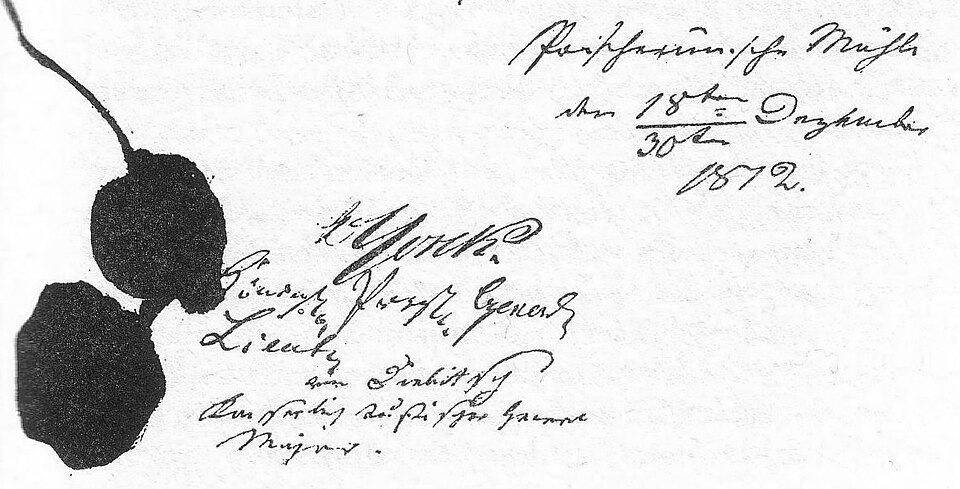 Poischerunsche Mühle
den 18ten Dezember
30ten
1812.
v. Yorck.
Königl. Preuß. General
Lieut.
von Diebitsch
Kaiserlich russischer General
Major.